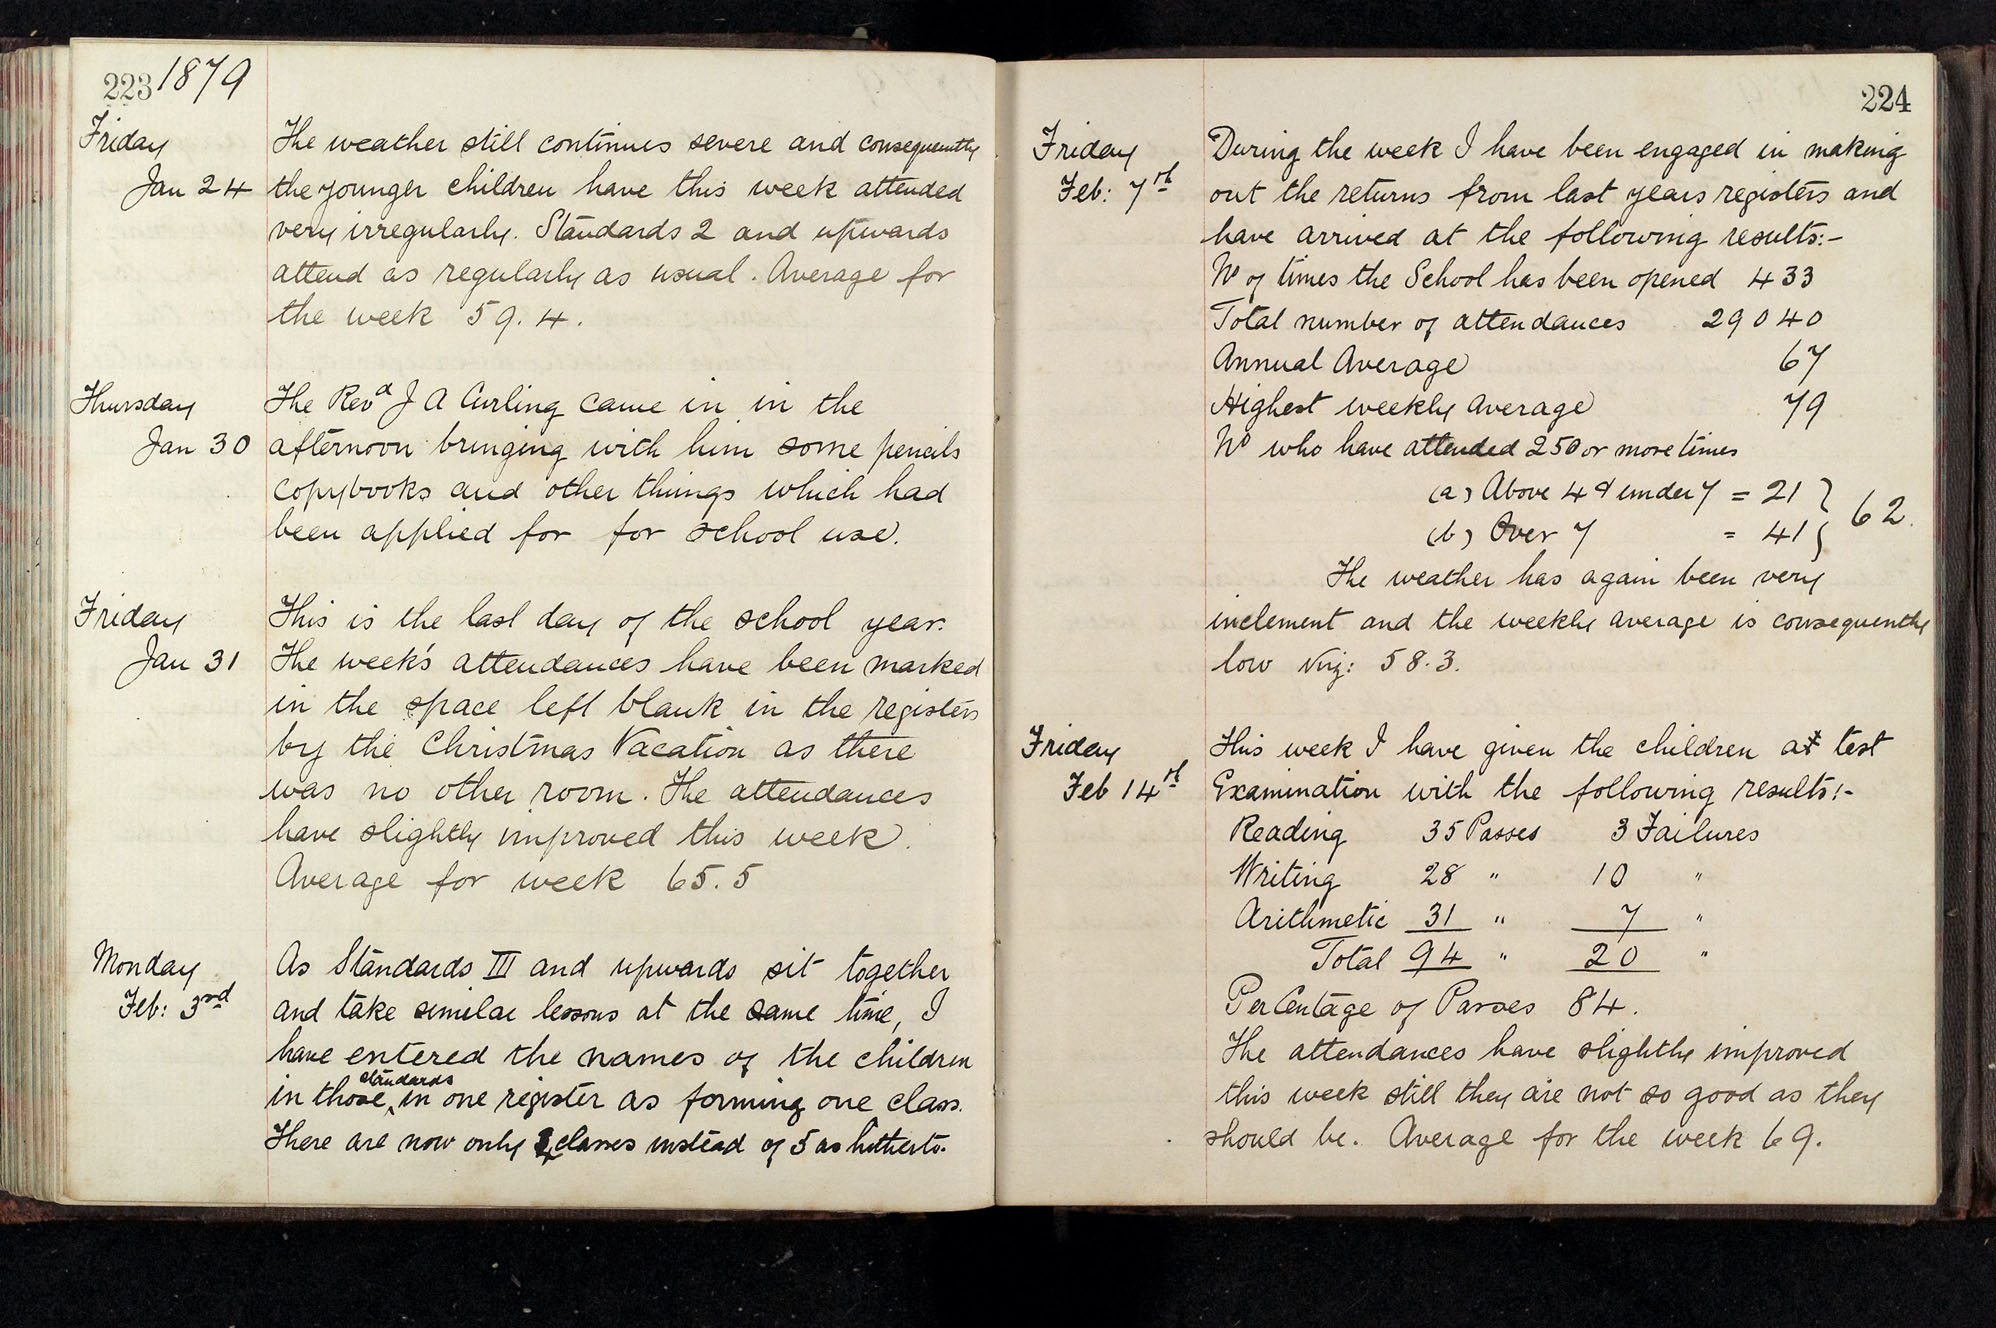 223 1879
Friday
Jan 24
The weather still continues severe and consequently
the younger children have this week attended
very irregularly. Standards 2 and upwards
attend as regularly as usual. Average for
the week 59.4.
Thursday
Jan 30
The Revd J A Curling came in in the
afternoon bringing with him some pencils
copybooks and other things which had
been applied for for school use.
Friday
Jan 31
This is the last day of the school year.
The week's attendances have been marked
in the space left blank in the registers
by the Christmas Vacation as there
was no other room. The attendances
have slightly improved this week.
Average for week 65.5
Monday
Feb: 3rd
As Standards III and upwards sit together
and take similar lessons at the same time, I
have entered the names of the children
standards
in those in one register as forming one class.
There are now only classes instead of 5 as hitherto.
224
Friday
Feb: 7th
During the week I have been engaged in making
out the returns from last years registers and
have arrived at the following results:-
No of times the School has been opened 433
Total number of attendances 29040
Annual Average 67
Highest weekly average 79
No who have attended 250 or more times
(a) Above 4 & under 7 = 21 } 62.
(b) Over 7 = 41 }
The weather has again been very
inclement and the weekly average is consequently
low viz: 58.3.
Friday
Feb 14th
This week I have given the children a test
Examination with the following results:-
Reading 35 Passes 3 Failures
Writing 28 " 10 "
Arithmetic 31 " 7 "
Total 94 " 20 "
Per Centage of Passes 84.
The attendances have slightly improved
this week still they are not so good as they
should be. Average for the week 69.